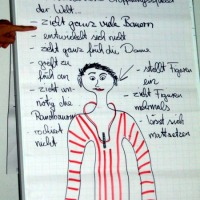 der Welt...
- zieht ganz viele Bauern
- entwickelt sich nicht
- zieht ganz früh die Dame
- greift zu früh an
- zieht unnötig die Randbauern
- rochiert nicht
- stellt Figuren ein
- zieht Figuren mehrmals
- lässt sich mattsetzen